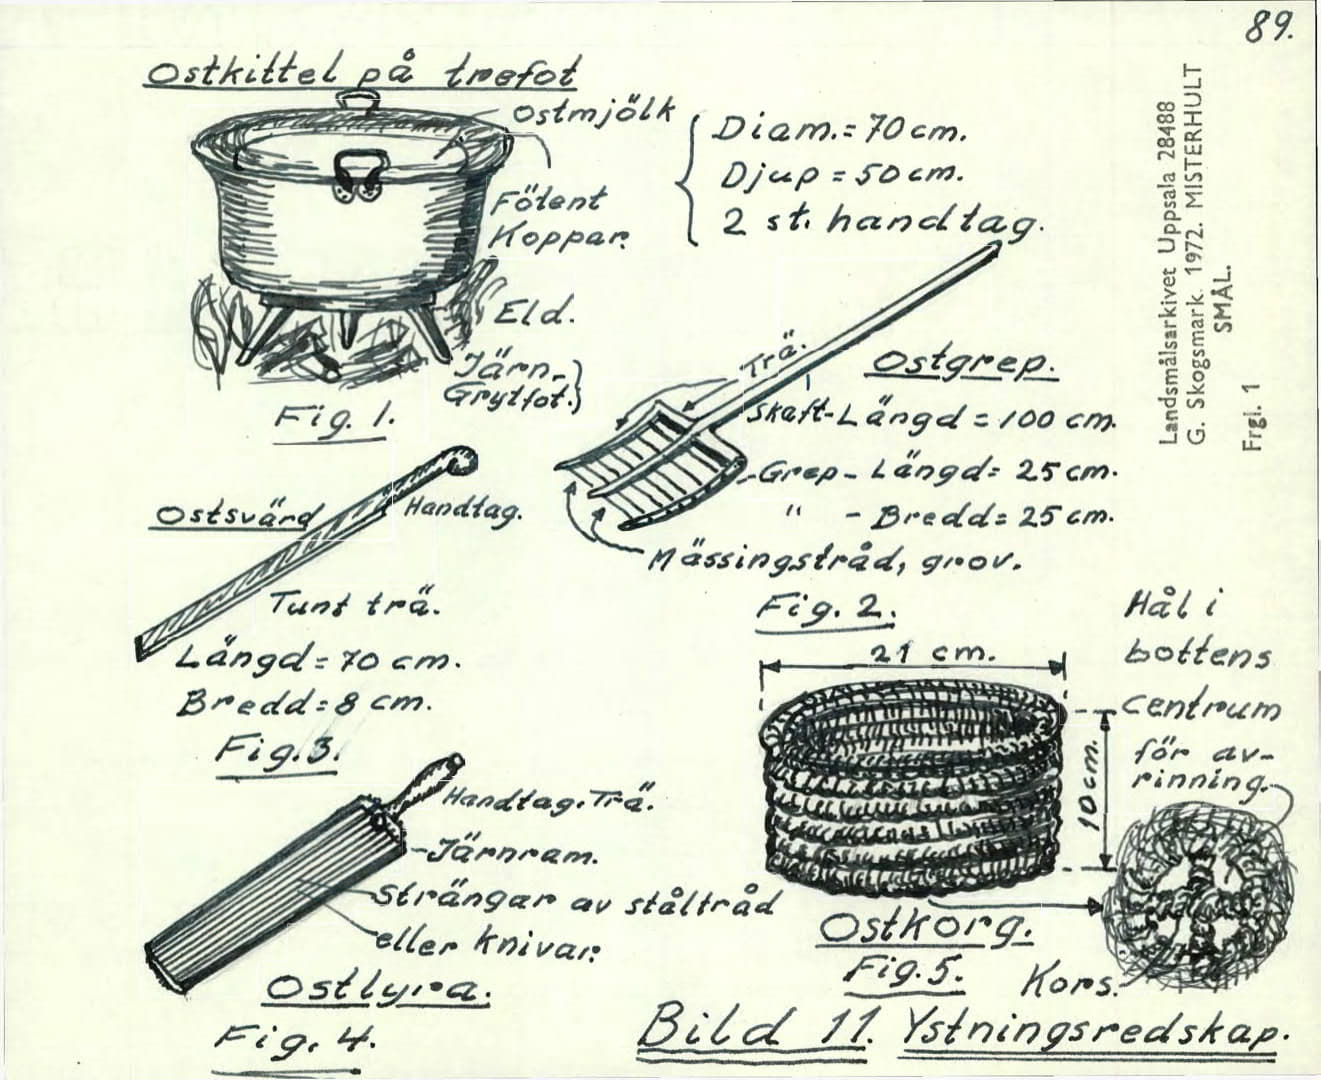 89.
Ostkittel på trefot
Ostmjölk
Diam.= 70 cm.
Djup = 50 cm.
2 st. handtag.
Förtent
Koppar.
Eld.
Järn-
Grytfot.
Fig. 1.
Trä.
Ostgrep.
Skaft-Längd = 100 cm.
Grep - Längd= 25 cm.
" - Bredd= 25 cm.
Mässingstråd, grov.
Fig. 2.
Ostsvärd
Handtag.
Tunt trä.
Längd= 70 cm.
Bredd= 8 cm.
Fig. 3.
Handtag. Trä.
Järnram.
Strängar av ståltråd
eller knivar.
Ostlyra.
Fig. 4.
21 cm.
10 cm.
Hål i
bottens
centrum
för av-
rinning.
Ostkorg.
Fig. 5.
Kors.
Bild 11. Ystningsredskap.
Landsmålsarkivet Uppsala 28488
G. Skogsmark. 1972. MISTERHULT
SMÅL.
Frgl. 1